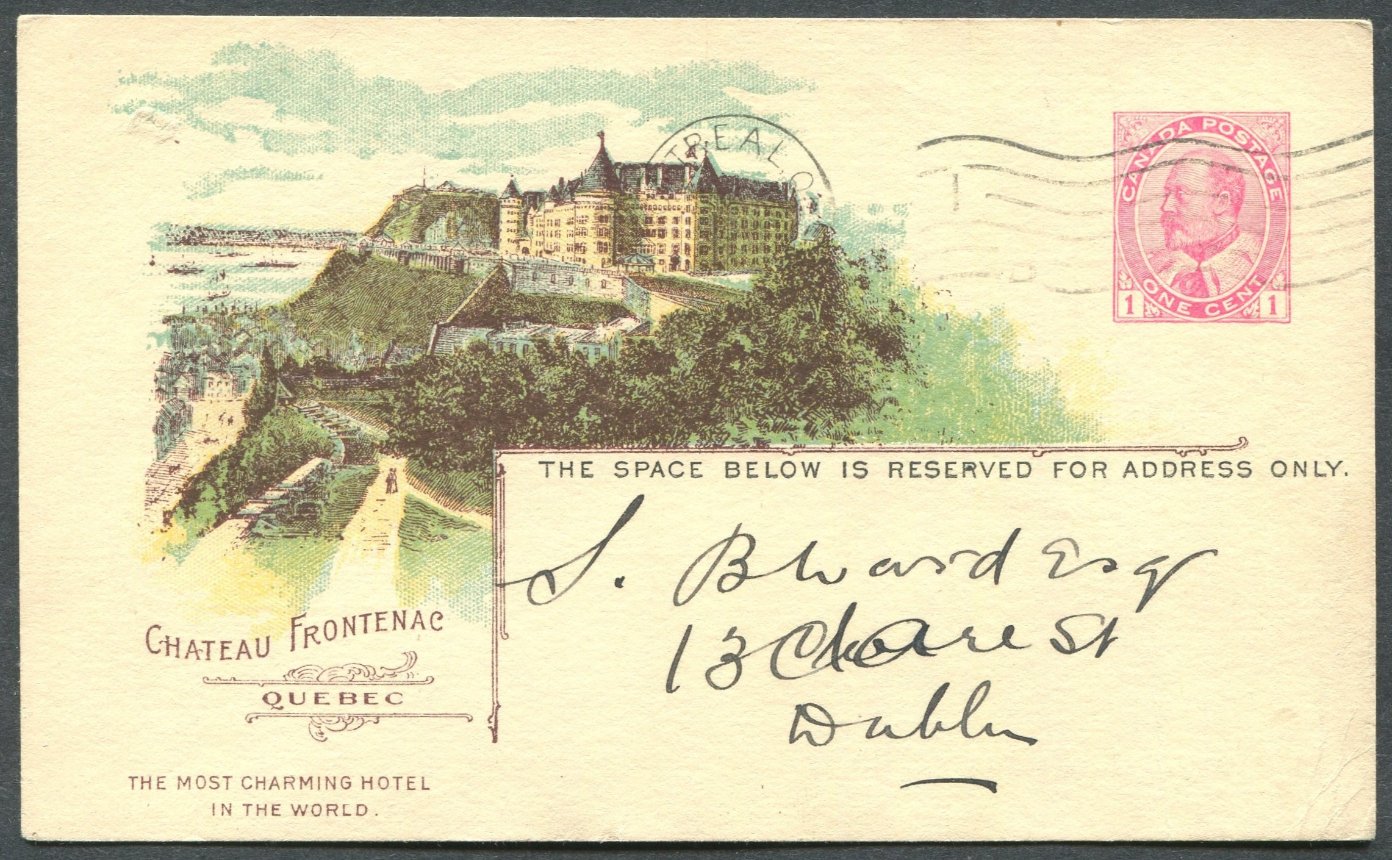 TREAL.Q
CANADA POSTAGE
1 ONE CENT 1
THE SPACE BELOW IS RESERVED FOR ADDRESS ONLY.
S. Esq
13 Clare St
Dublin
CHATEAU FRONTENAC
QUEBEC
THE MOST CHARMING HOTEL
IN THE WORLD.